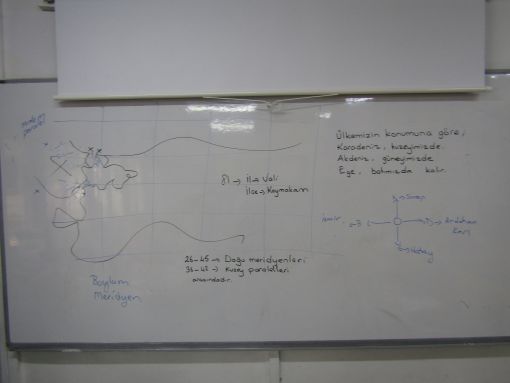 paralel
81 → İl → Vali
İlçe → Kaymakam
26-45 → Doğu meridyenleri
36-42 → Kuzey paralelleri
arasındadır.
Boylam
Meridyen
Ülkemizin konumuna göre;
Karadeniz, kuzeyimizde
Akdeniz, güneyimizde
Ege, batımızda kalır.
Sinop
İzmir B D Ardahan
Hatay